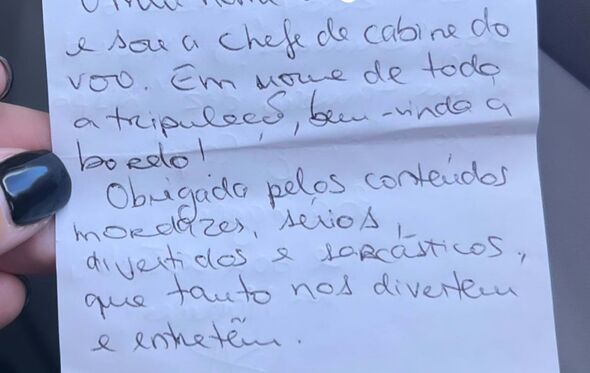 e sou a chefe de cabine do
voo. Em nome de toda
a tripulação, bem-vinda a
bordo!
Obrigada pelos conteúdos
mordazes, sérios,
divertidos e sarcásticos,
que tanto nos divertem
e entretêm.